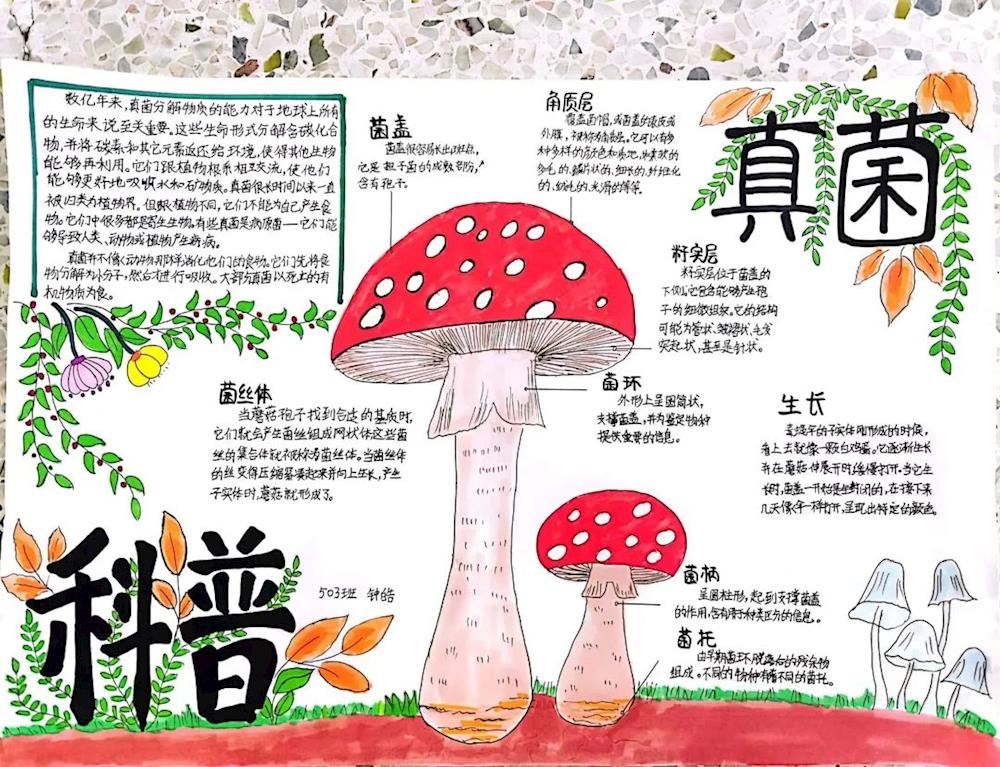 真菌
科普
数亿年来,真菌分解物质的能力对于地球上所有
的生命来说至关重要。这些生命形式分解含碳化合
物,并将碳素和其它元素返还给环境,使得其他生物
能够再利用。它们跟植物根系相互交流,使他们
能够更好地吸收水和矿物质。真菌很长时间以来一直
被归类为植物界。但跟植物不同,它们不能为自己产生食
物。它们中很多都是寄生生物。有些真菌是病原菌——它们能
够导致人类、动物或植物产生疾病。
真菌并不像动物那样消化他们的食物。它们先将食
物分解为小分子,然后才进行吸收。大部分真菌以死亡的有
机物质为食。
菌盖
菌盖很容易长出斑点,
它是担子菌的成熟名阶,
含有孢子。
角质层
覆盖菌帽,或菌盖的表皮或
外膜,被称为角质层。它可以有多
种多样的颜色和质地,
毛的、鳞片状的、细长的、纤维化
的、光滑的等等。
籽实层
籽实层位于菌盖的
下侧。它包含能够产生孢
子的细微组织。它的结构
可能为管状、皱褶状、
突起状,甚至是针状。
菌环
外形上呈圆筒状,
支撑菌盖,并为鉴定物种
提供重要的信息。
菌丝体
当蘑菇孢子找到合适的基质时,
它们就会产生菌丝组成网状体这些菌
丝的集合体就被称为菌丝体。当菌丝体
的丝变得压缩紧凑起来并向上生长,产生
子实体时,蘑菇就形成了。
生长
当子实体刚形成的时候,
看上去就像一颗白鸡蛋。它逐渐生长
并在蘑菇伸展开时,缓慢打开。当它生
长时,菌盖一开始是封闭的,在接下来
几天像伞一样打开,呈现出特定的颜色。
503班 钟皓
菌柄
呈圆柱形,起到支撑菌盖
的作用,含有用于种类区分的信息。
菌托
由早期菌环脱落后的残余物
组成。不同的物种有着不同的菌托。